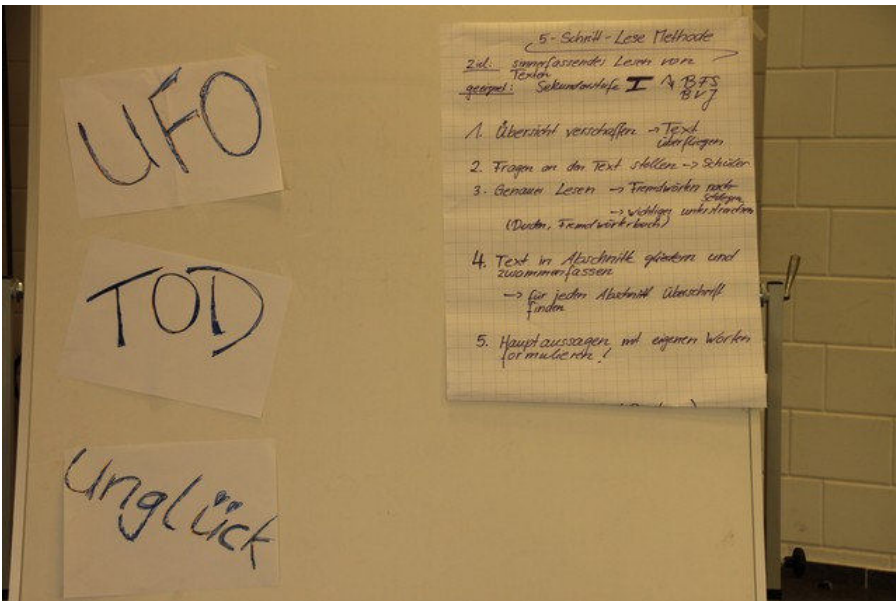 UFO
TOD
Unglück
5-Schritt-Lese Methode
Ziel: sinnerfassendes Lesen von
Texten
geeignet: Sekundarstufe I
BFS
BVJ
1. Übersicht verschaffen → Text
überfliegen
2. Fragen an den Text stellen → Schüler
3. Genauer Lesen → Fremdwörter nach-
schlagen
→ wichtiges unterstreichen
(Duden, Fremdwörterbuch)
4. Text in Abschnitte gliedern und
zusammenfassen
→ für jeden Abschnitt Überschrift
finden
5. Hauptaussagen mit eigenen Worten
formulieren!